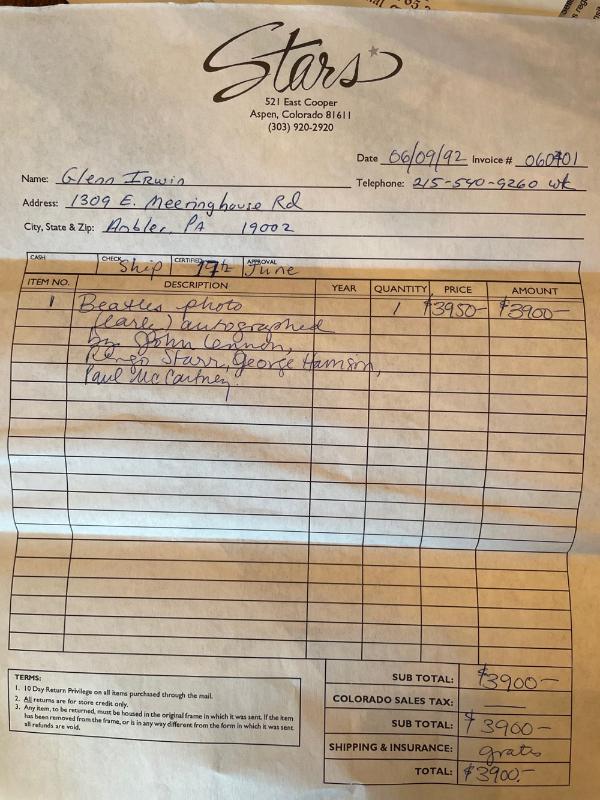 Stars
521 East Cooper
Aspen, Colorado 81611
(303) 920-2920
Date 06/09/92 Invoice # 060701
Name: Glenn Irwin Telephone: 215-540-9260 wk
Address: 1309 E. Meeringhouse Rd
City, State & Zip: Ambler, PA 19002
CASH CHECK Ship CERTIFIED 17th APPROVAL June
ITEM NO. DESCRIPTION YEAR QUANTITY PRICE AMOUNT
1 Beatles photo 1 $3950- $3900-
(early) autographed
by John Lennon,
Ringo Starr, George Harrison,
Paul McCartney.
SUB TOTAL: $3900-
COLORADO SALES TAX:
SUB TOTAL: $3900-
SHIPPING & INSURANCE: gratis
TOTAL: $3900.-
TERMS:
1. 10 Day Return Privilege on all items purchased through the mail.
2. All returns are for store credit only.
3. Any item, to be returned, must be housed in the original frame in which it was sent. If the item
has been removed from the frame, or is in any way different from the form in which it was sent
all refunds are void.